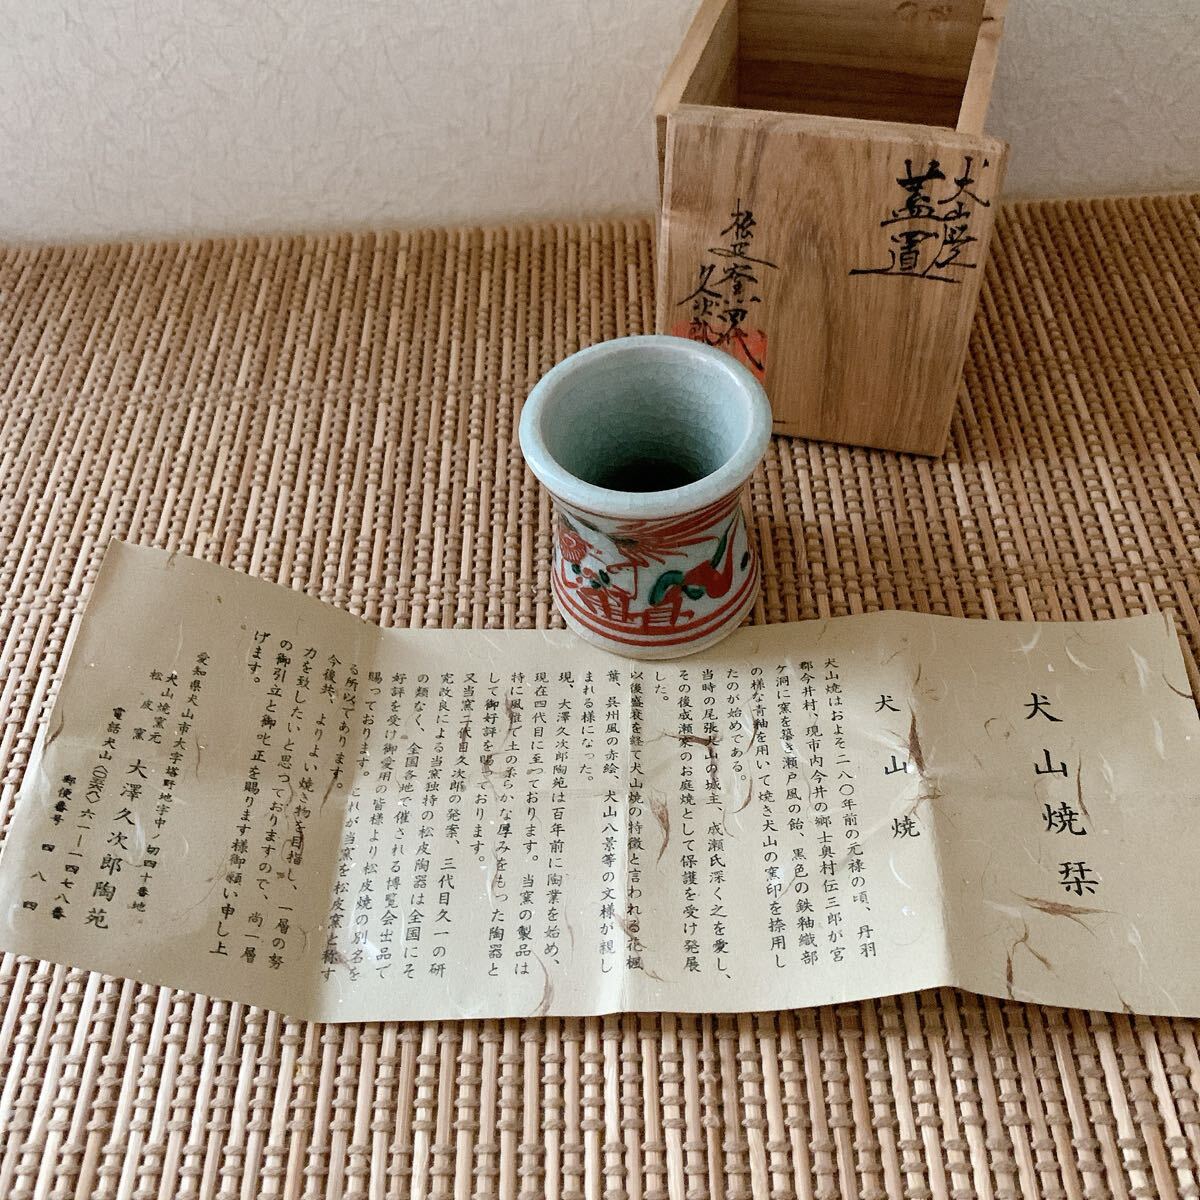 犬山焼
蓋置
松皮窯四代
久次郎
犬山焼栞
犬山焼
犬山焼はおよそ二八〇年前の元禄の頃、丹羽
郡今井村、現市内今井の郷士奥村伝三郎が宮
ケ洞に窯を築き瀬戸風の飴、黒色の鉄釉織部
の様な青釉を用いて焼き犬山の窯印を捺用し
たのが始めである。
当時の尾張犬山の城主、成瀬氏深く之を愛し、
その後成瀬家のお庭焼として保護を受け発展
した。
以後盛衰を経て犬山焼の特徴と言われる花楓
葉、呉州風の赤絵、犬山八景等の文様が親し
まれる様になった。
現、大澤久次郎陶苑は百年前に陶業を始め、
現在四代目に至っております。当窯の製品は
特に風雅で土の柔らかな厚みをもった陶器と
して御好評を賜っております。
又当窯二代目久次郎の発案、三代目久一の研
究改良による当窯独特の松皮陶器は全国にそ
の類なく、全国各地で催される博覧会出品で
好評を受け御愛用の皆様より松皮焼の別名を
賜っております。これが当窯を松皮窯と称す
る所以であります。
今後共、よりよい焼き物を目指し、一層の努
力を致したいと思っておりますので、尚一層
の御引立と御叱正を賜ります様御願い申し上
げます。
愛知県犬山市大字塔野地字中ノ切四十番地
犬山焼窯元
松皮窯 大澤久次郎陶苑
電話犬山(〇五六八)六一―一四七八番
郵便番号 四八四